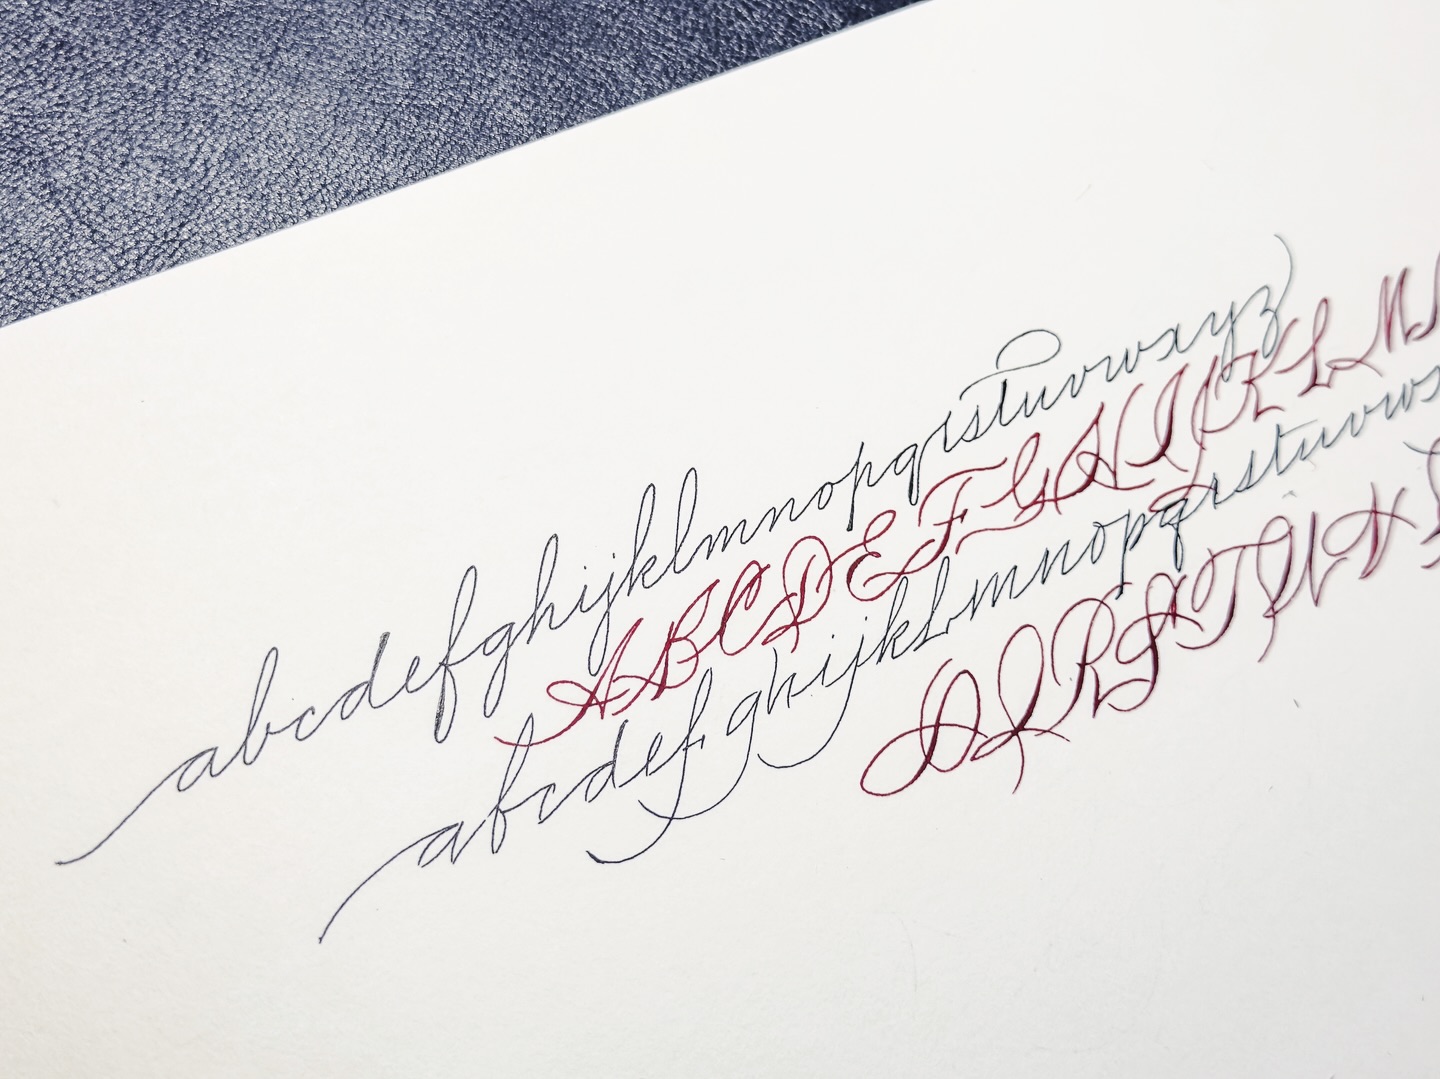 abcdefghijklmnopqrstuvwxyz
ABCDEFGHIJKLM
abcdefghijklmnopqrstuvwx
OQRSTUVX